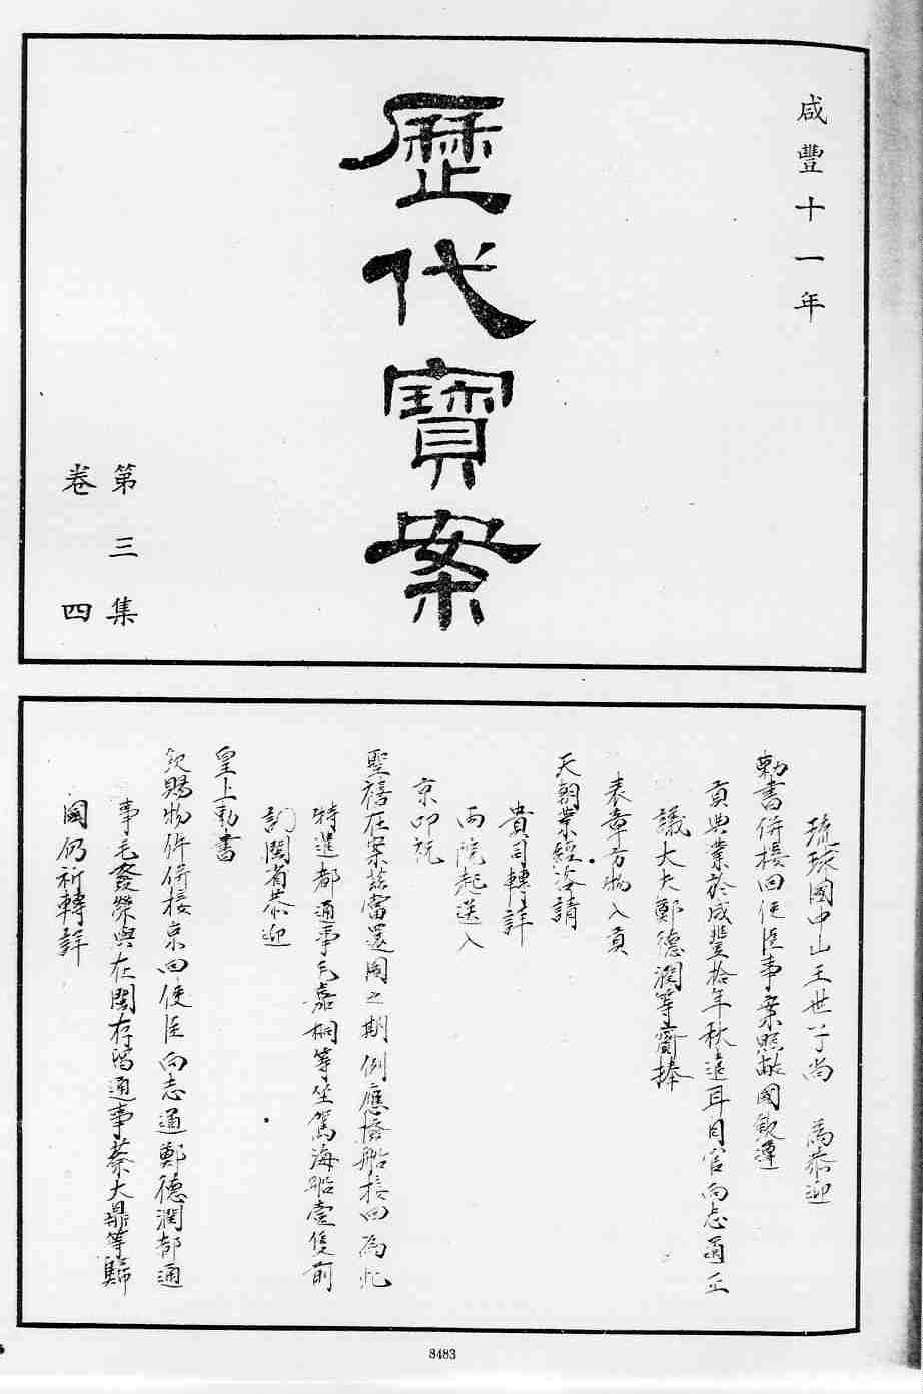 咸豐十一年
歷代寶案
第三集
卷四
琉球國中山王世子尚　為恭迎
勅書併接回使臣事案照敝國欽遵
貢典業於咸豐拾年秋遣耳目官向志通正
議大夫鄭德潤等齎捧
表章方物入貢
天朝業經咨請
貴司轉詳
兩院起送入
京叩祝
聖禧在案茲當還國之期例應撥船接回為此
特遣都通事毛嘉桐等坐駕海船壹隻前
詣閩省恭迎
皇上勅書
欽賜物件併接京回使臣向志通鄭德潤都通
事毛發榮與在閩存留通事蔡大鼎等歸
國仍祈轉詳
8483